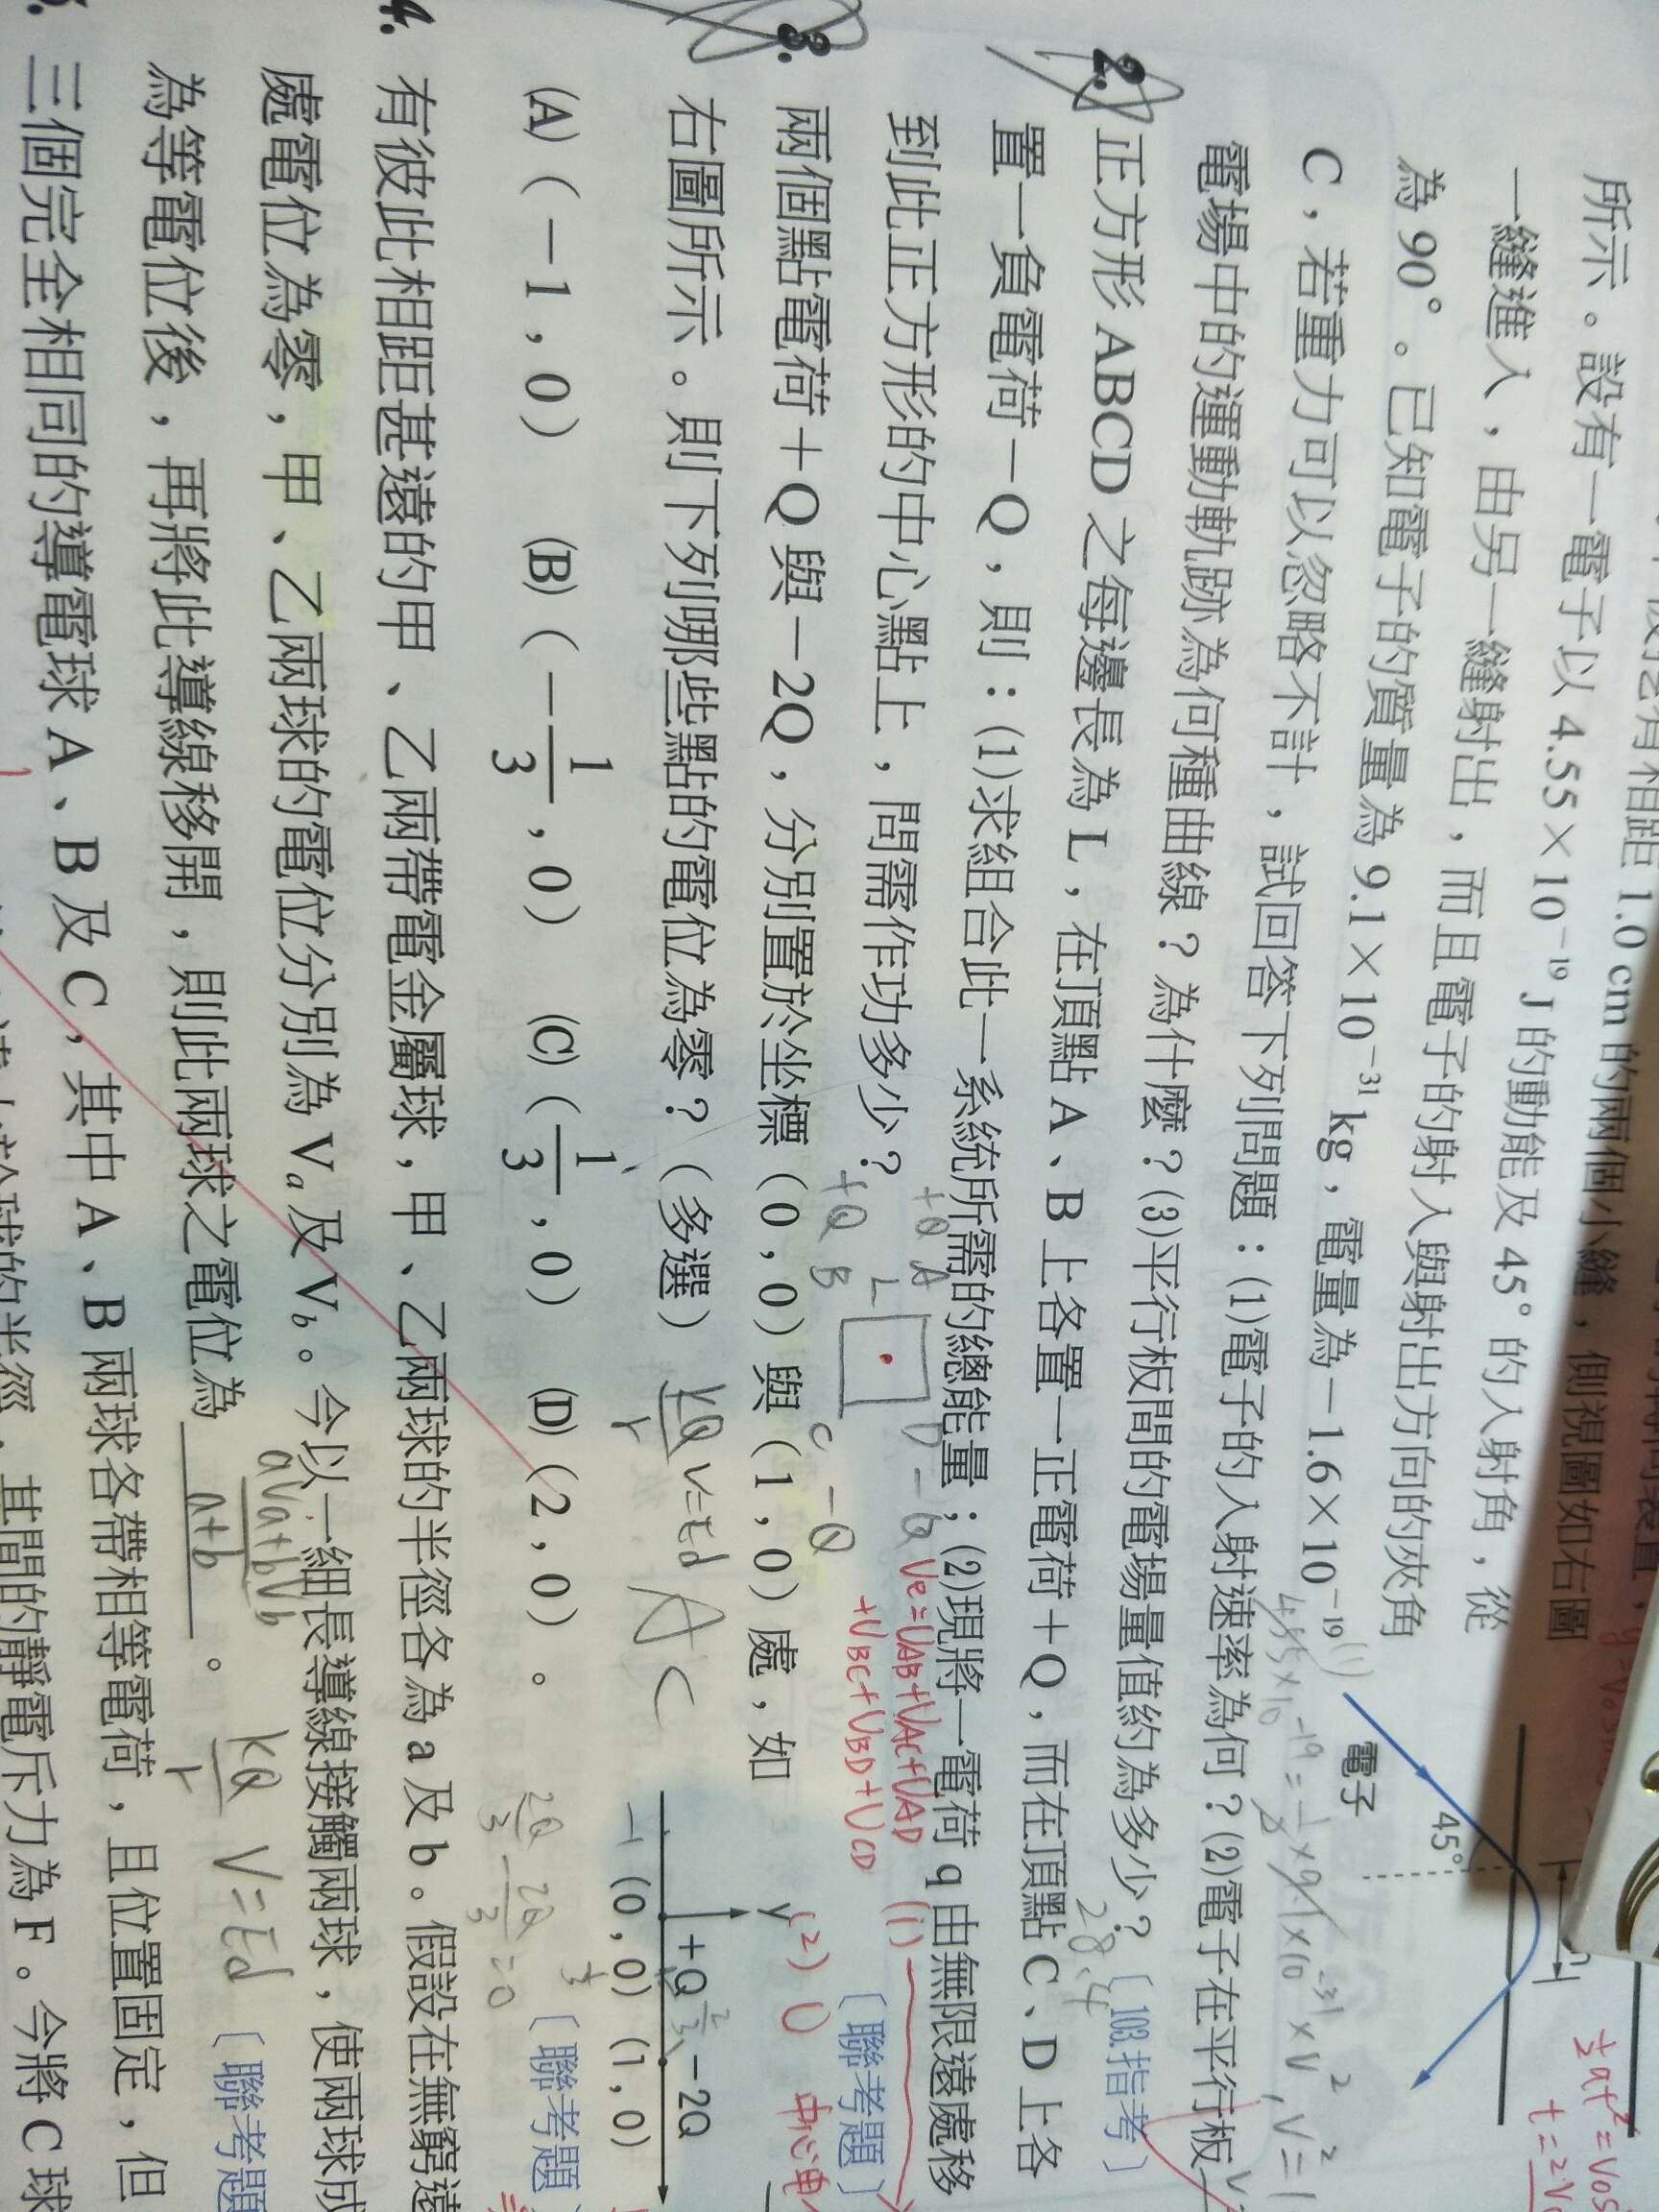 所示。設有一電子以 4.55×10⁻¹⁹ J 的動能及 45° 的入射角，從
一縫進入，由另一縫射出，而且電子的射入與射出方向的夾角
為 90°。已知電子的質量為 9.1×10⁻³¹ kg，電量為－1.6×10⁻¹⁹
C，若重力可以忽略不計，試回答下列問題：(1)電子的入射速率為何？(2)電子在平行板
電場中的運動軌跡為何種曲線？為什麼？(3)平行板間的電場量值約為多少？〔103.指考〕
電子
45°
4.55×10⁻¹⁹=½×9.1×10⁻³¹×V²，V²=
28.4
2. 正方形 ABCD 之每邊長為 L，在頂點 A、B 上各置一正電荷＋Q，而在頂點 C、D 上各
置一負電荷－Q，則：(1)求組合此一系統所需的總能量；(2)現將一電荷 q 由無限遠處移
到此正方形的中心點上，問需作功多少？
〔聯考題〕
+Q A
L
D -Q
+Q B
C -Q
Ve=UAB+UAC+UAD
+UBC+UBD+UCD
(1)
(2) 0
3. 兩個點電荷＋Q 與－2Q，分別置於坐標（0，0）與（1，0）處，如
右圖所示。則下列哪些點的電位為零？（多選）
kQ/r V=Ed
A C
(A)（－1，0） (B)（－1/3，0） (C)（1/3，0） (D)（2，0）。
〔聯考題〕
y
+Q
-2Q
-1 (0，0) (1，0)
2Q/3 - 2Q/3 = 0
4. 有彼此相距甚遠的甲、乙兩帶電金屬球，甲、乙兩球的半徑各為 a 及 b。假設在無窮遠
處電位為零，甲、乙兩球的電位分別為 Vₐ 及 V_b。今以一細長導線接觸兩球，使兩球成
為等電位後，再將此導線移開，則此兩球之電位為 (aVa+bVb)/(a+b) 。
kQ/r V=Ed
〔聯考題
三個完全相同的導電球 A、B 及 C，其中 A、B 兩球各帶相等電荷，且位置固定，但
其間的靜電斥力為 F。今將 C 球